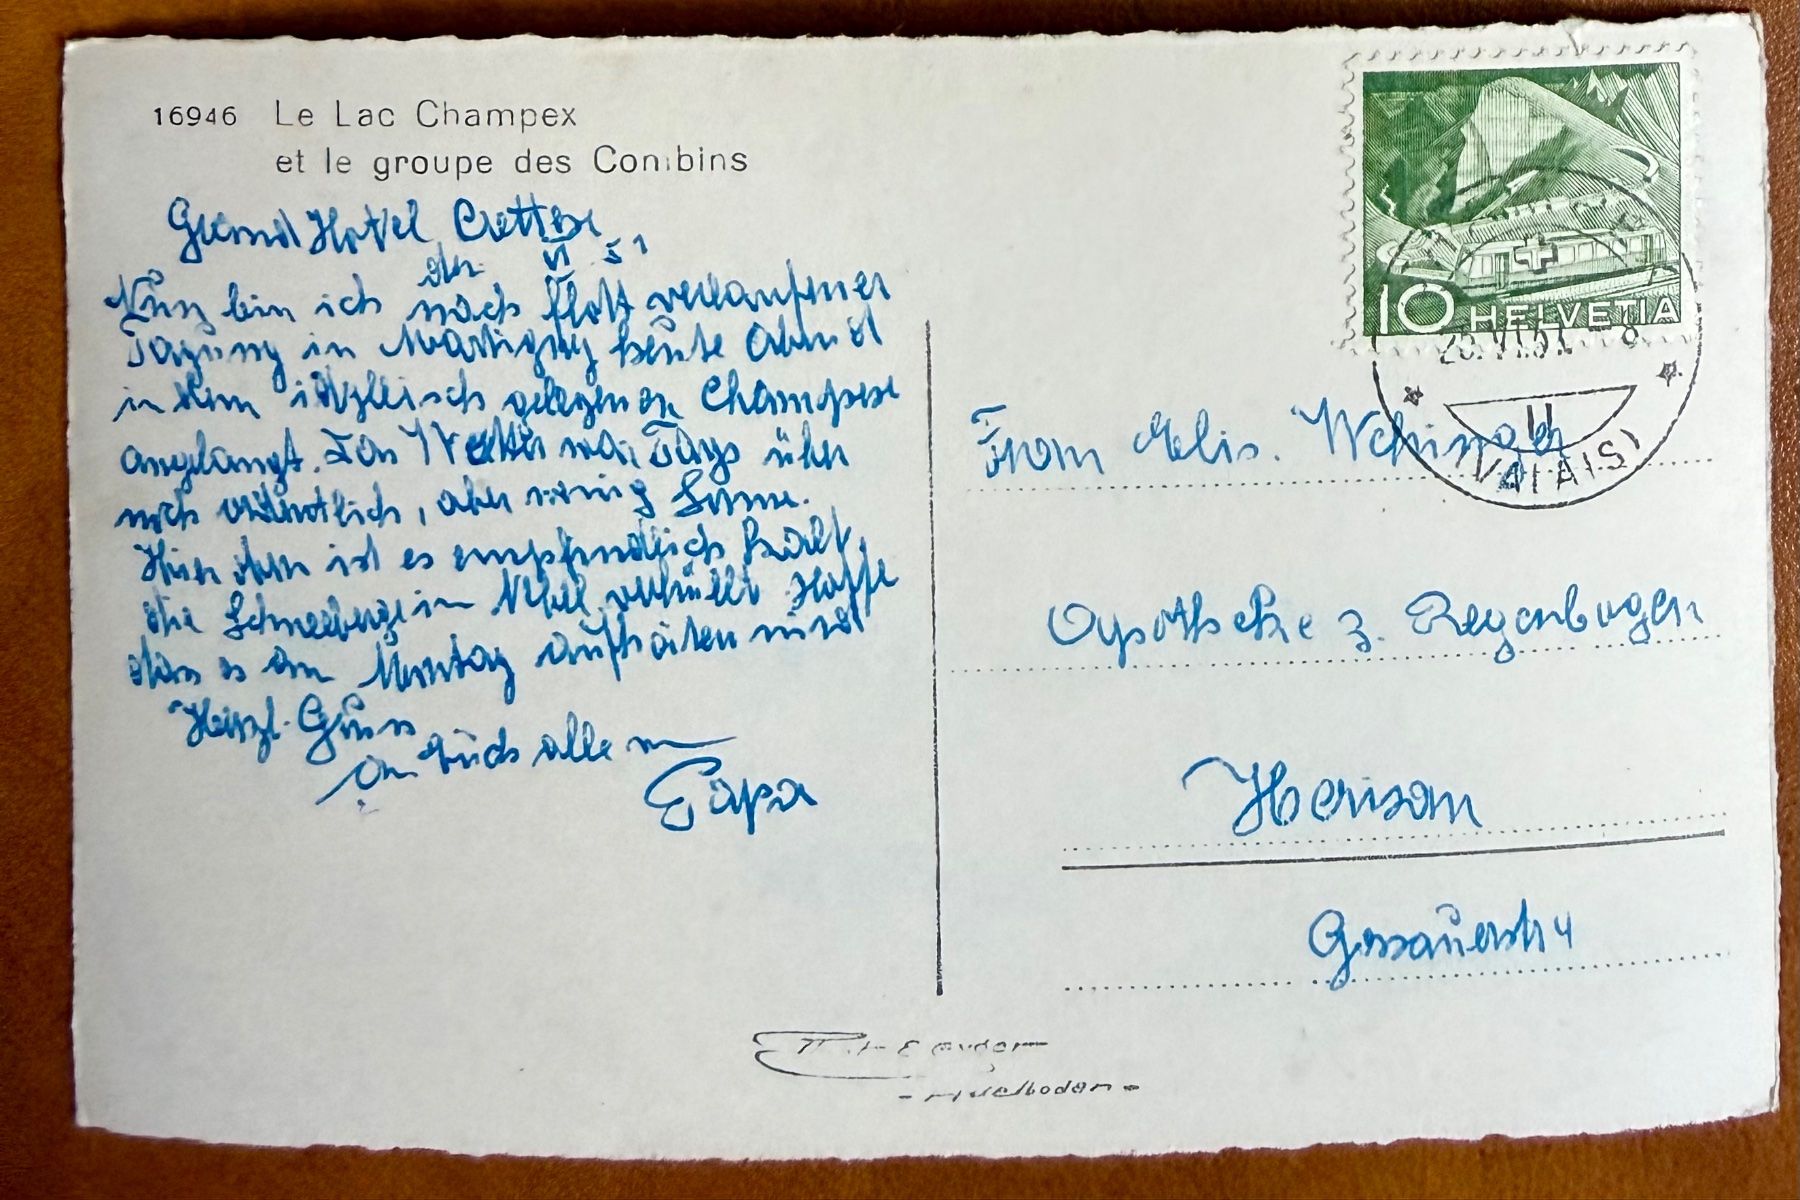 16946 Le Lac Champex
et le groupe des Combins
Grand Hotel Crettex
VI 51
Nun bin ich nach flott verlaufener
Tagung in Martigny heute Abend
in dem idyllisch gelegenen Champex
angelangt. Das Wetter war Tags über
noch ordentlich, aber wenig Sonne.
Hier oben ist es empfindlich kalt,
die Schneeberge in Nebel verhüllt. Hoffe
dass es am Montag aufheitern wird
Herzl. Gruss
an Euch alle
Papa
10 HELVETIA
VI.51. - 8
(VALAIS)
Frau Elis.
Apotheke z. Regenbogen
Herisau
Gossauerstr 4
- Adelboden -